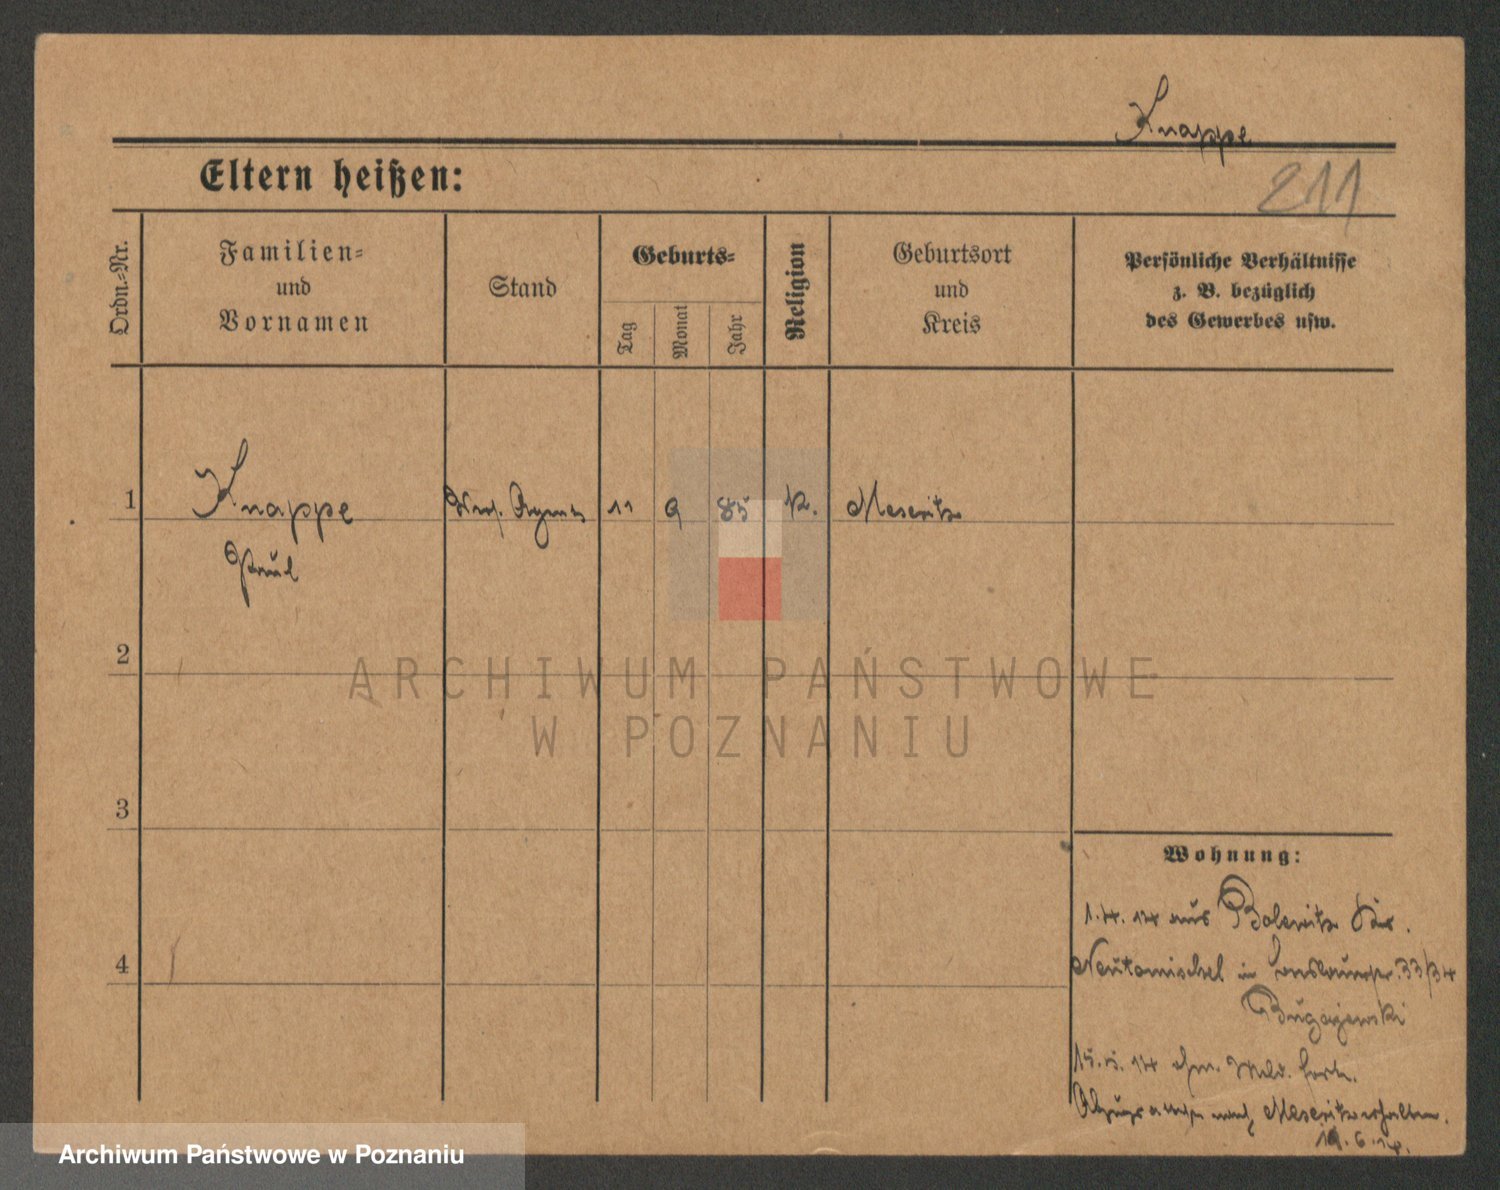 Knappe
Eltern heißen:
211
Ordn.-Nr.
Familien-
und
Vornamen
Stand
Geburts-
Tag
Monat
Jahr
Religion
Geburtsort
und
Kreis
Persönliche Verhältnisse
z. B. bezüglich
des Gewerbes usw.
1
Knappe
11 9 85 K. Meseritz
Paul
2
ARCHIWUM PAŃSTWOWE
W POZNANIU
3
Wohnung:
1.4.14 aus Bolewitz Krs.
4
Neutomischel in 33/34
Bugajewski
15.5.14 ohne Meld. fort.
nach Meseritz erhalten.
19.6.14.
Archiwum Państwowe w Poznaniu